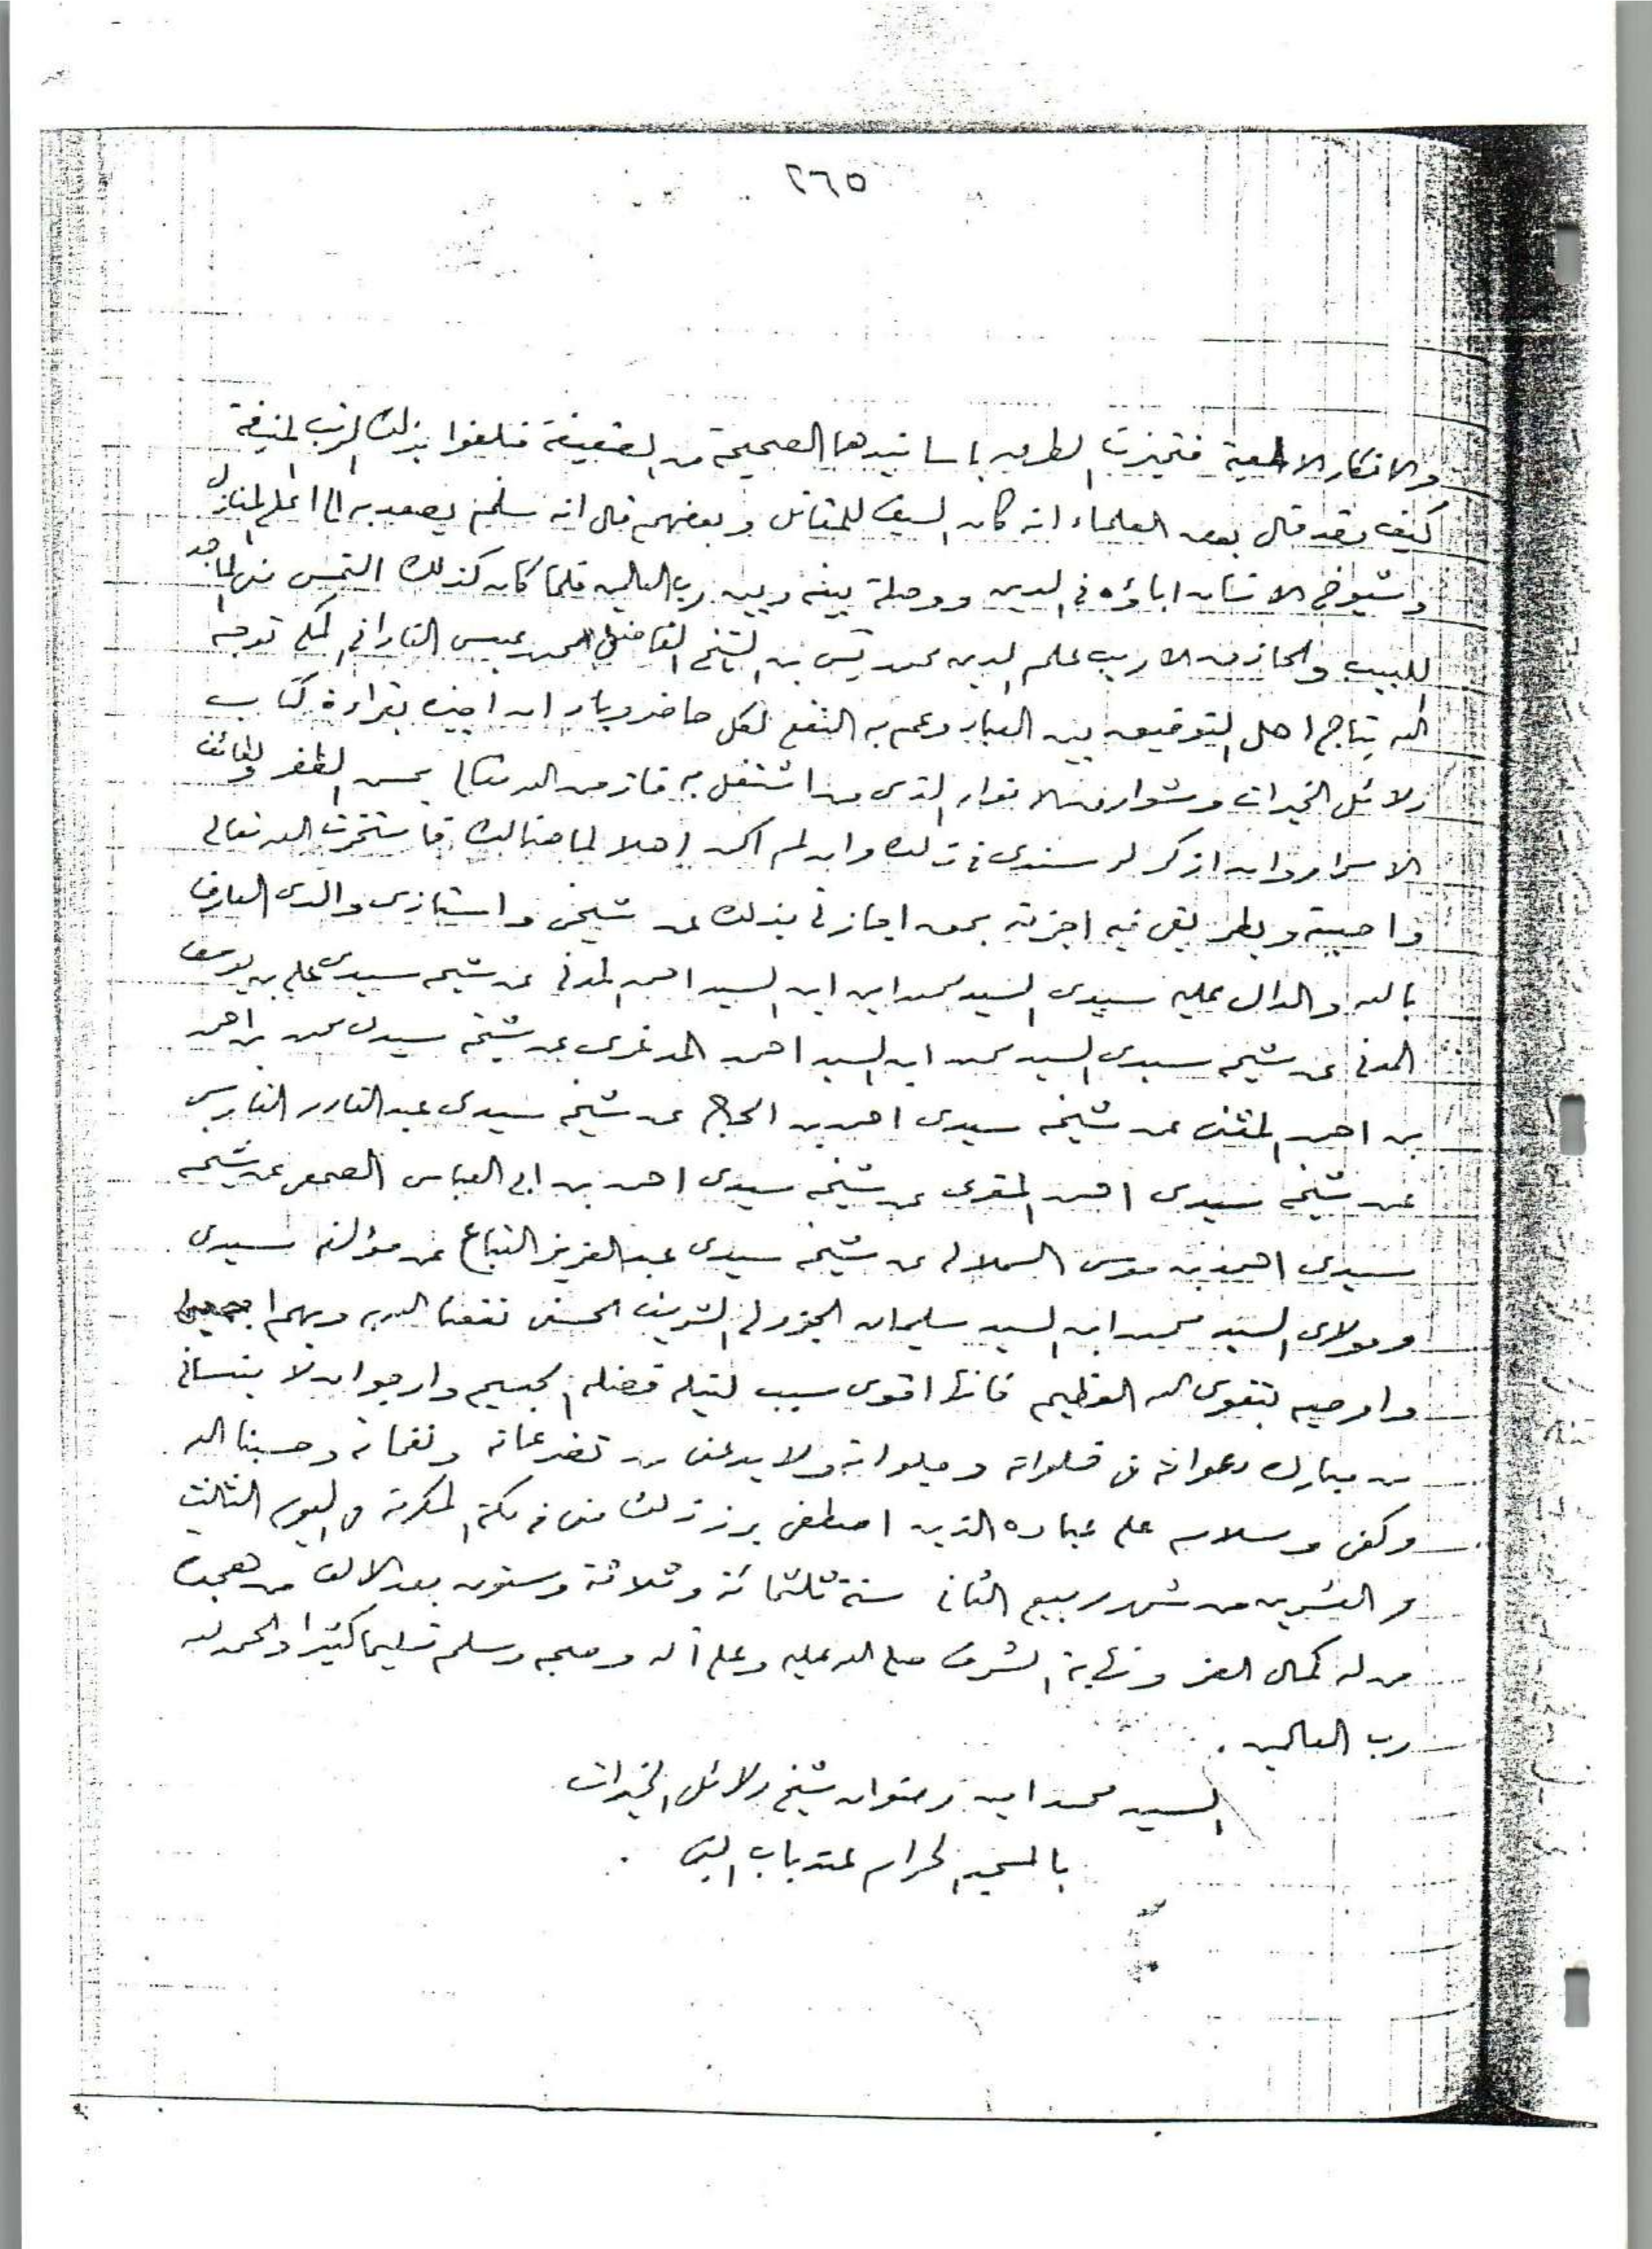 ٢٦٥
والافكار الالمعية فتميزت الطرق باسانيدها الصحيحة من الضعيفة فبلغوا بذلك الرتب المنيفة
كيف وقد قال بعض العلماء انه كان السيف للمقاتل وبعضهم قال انه سلم يصعد به الى اعلى المنازل
وشيوخ الانسان اباؤه في الدين ووصلة بينه وبين رب العالمين فلما كان كذلك التمس مني الماجد
اللبيب والحاذق الاريب علم الدين محمد يس بن الشيخ الفاضل محمد عيسى الفاداني المكي توجه
الله بتاج اهل التوفيق بين العباد وعم به النفع لكل حاضر وباد ان اجيزه بقراءة كتاب
دلائل الخيرات وشوارق الانوار الذي من اشتغل به فاز من الله تعالى بحسن الظفر ولطائف
الاسرار وان اذكر له سندي في ذلك وان لم اكن اهلا لما هنالك فاستخرت الله تعالى
واجبته وبطريقي فيه اجزته بحق اجازتي بذلك عن شيخي واستاذي والدي العارف
بالله والدال عليه سيدي السيد محمد امين ابن السيد احمد المدني عن شيخه سيدي علي بن يوسف
المدني عن شيخه سيدي السيد محمد ابن السيد احمد المدغري عن شيخه سيدي محمد بن احمد
بن احمد المثنى عن شيخه سيدي احمد بن الحاج عن شيخه سيدي عبد القادر الفاسي
عن شيخه سيدي احمد المقري عن شيخه سيدي احمد بن ابي العباس الصمعي عن شيخه
سيدي احمد بن موسى السملالي عن شيخه سيدي عبد العزيز التباع عن مؤلفه سيدي
ومولاي السيد محمد ابن السيد سليمان الجزولي الشريف الحسني نفعنا الله به وبهم اجمعين
واوصيه بتقوى الله العظيم فانها اقوى سبب لنيل فضله الجسيم وارجو ان لا ينساني
من مبارك دعواته في خلواته وجلواته ولا يدعني من تضرعاته ونفحاته وحسبنا الله
وكفى وسلام على عباده الذين اصطفى برز ذلك مني في مكة المكرمة في اليوم الثالث
والعشرين من شهر ربيع الثاني سنة ثلثمائة وثلاثة وستون بعد الالف من هجرة
من له كمال العز ونهاية الشرف صلى الله عليه وعلى آله وصحبه وسلم تسليما كثيرا والحمد لله
رب العالمين .
السيد محمد امين رضوان شيخ دلائل الخيرات
بالمسجد الحرام عند باب النبي .